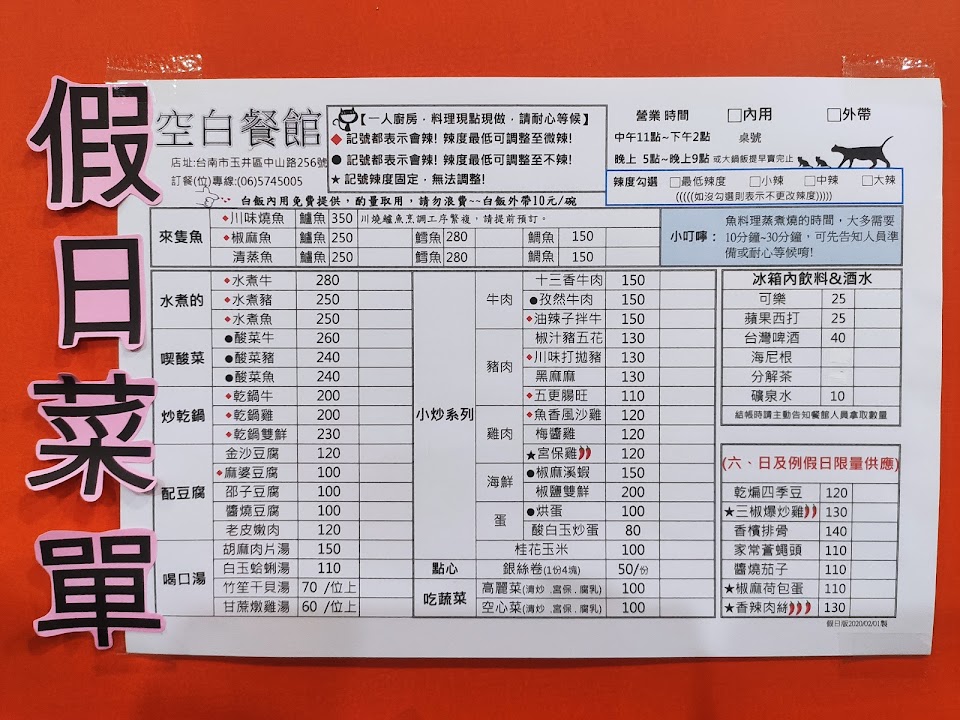 假日菜單
空白餐館
店址:台南市玉井區中山路256號
訂餐(位)專線:(06)5745005
【一人廚房．料理現點現做，請耐心等候】
◆記號都表示會辣! 辣度最低可調整至微辣!
●記號都表示會辣! 辣度最低可調整至不辣!
★記號辣度固定，無法調整!
營業 時間 □內用 □外帶
中午11點~下午2點 桌號
晚上 5點~晚上9點 或大鍋飯提早賣完止
辣度勾選 □最低辣度 □小辣 □中辣 □大辣
(((((如沒勾選則表示不更改辣度)))))
白飯內用免費提供，酌量取用，請勿浪費~~白飯外帶10元/碗
來隻魚
◆川味燒魚 鱸魚 350 川燒鱸魚烹調工序繁複，請提前預訂。
◆椒麻魚 鱸魚 250 鱈魚 280 鯛魚 150
清蒸魚 鱸魚 250 鱈魚 280 鯛魚 150
小叮嚀：
魚料理蒸煮燒的時間，大多需要
10分鐘~30分鐘，可先告知人員準
備或耐心等候唷!
水煮的
◆水煮牛 280
◆水煮豬 250
◆水煮魚 250
喫酸菜
●酸菜牛 260
●酸菜豬 240
●酸菜魚 240
炒乾鍋
◆乾鍋牛 200
◆乾鍋雞 200
◆乾鍋雙鮮 230
配豆腐
金沙豆腐 120
◆麻婆豆腐 100
邵子豆腐 100
醬燒豆腐 100
老皮嫩肉 120
喝口湯
胡麻肉片湯 150
白玉蛤蜊湯 110
竹笙干貝湯 70 /位上
甘蔗燉雞湯 60 /位上
小炒系列
牛肉
十三香牛肉 150
●孜然牛肉 150
◆油辣子拌牛 150
豬肉
椒汁豬五花 130
◆川味打拋豬 130
黑麻麻 130
◆五更腸旺 110
雞肉
◆魚香風沙雞 120
梅醬雞 120
★宮保雞 120
海鮮
●椒麻溪蝦 150
椒鹽雙鮮 200
蛋
●烘蛋 100
酸白玉炒蛋 80
桂花玉米 100
點心 銀絲卷(1份4塊) 50/份
吃蔬菜
高麗菜(清炒 .宮保 .腐乳) 100
空心菜(清炒 .宮保 .腐乳) 100
冰箱內飲料&酒水
可樂 25
蘋果西打 25
台灣啤酒 40
海尼根
分解茶
礦泉水 10
結帳時請主動告知餐館人員拿取數量
(六、日及例假日限量供應)
乾煸四季豆 120
★三椒爆炒雞 130
香檳排骨 140
家常蒼蠅頭 110
醬燒茄子 110
★椒麻荷包蛋 110
★香辣肉絲 130
假日版2020/02/01製